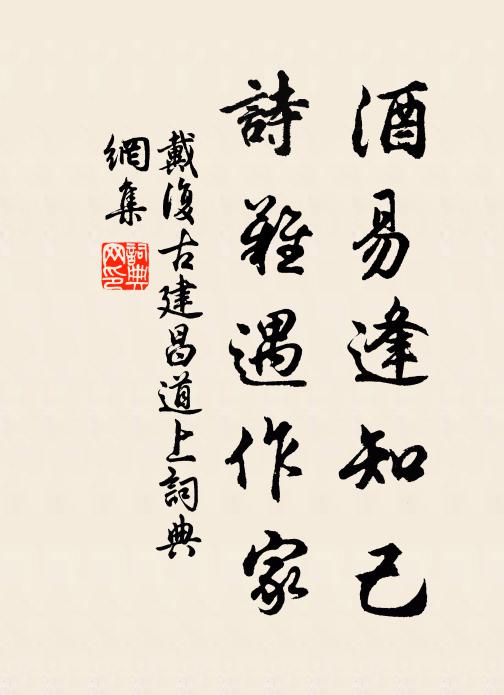 酒易逢知己
詩難遇作家
戴復古建昌道上詞典
網集
詞典
网印